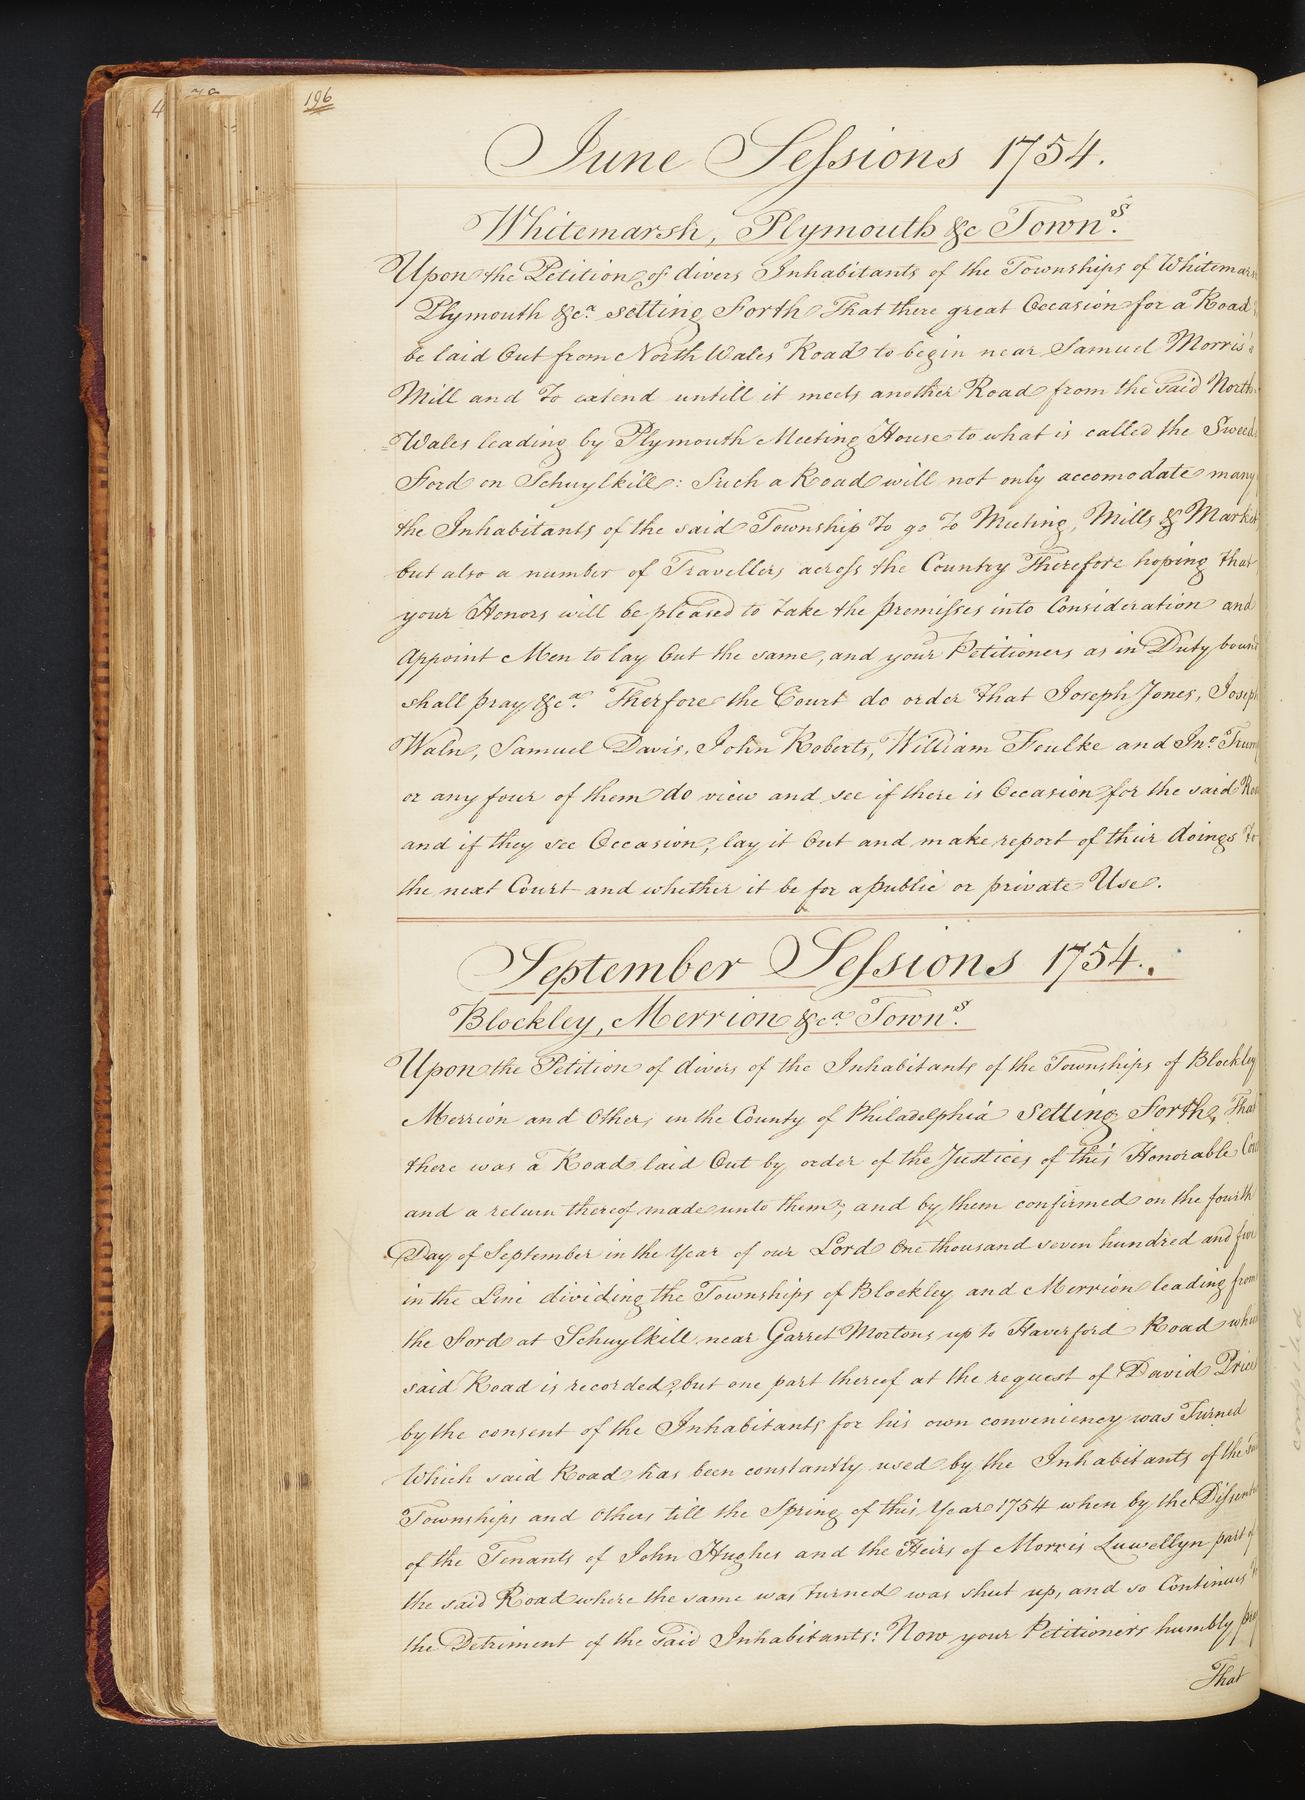 196
June Sessions 1754.
Whitemarsh, Plymouth &c Town.s
Upon the Petition of divers Inhabitants of the Townships of Whitemars
Plymouth &c.a setting Forth That there great Occasion for a Road
be laid Out from North Wales Road to begin near Samuel Morris's
Mill and To extend untill it meets another Road from the said North
Wales leading by Plymouth Meeting House to what is called the Sweed
Ford on Schuylkill: Such a Road will not only accomodate many
the Inhabitants of the said Township To go To Meeting, Mills & Market
but also a number of Travellers across the Country Therefore hoping that
your Honors will be pleased to take the premisses into Consideration and
Appoint Men to lay Out the same, and your Petitioners as in Duty bound
shall pray &c.a Therfore the Court do order that Joseph Jones, Joseph
Waln, Samuel Davis, John Roberts, William Foulke and Jno. Trum
or any four of them do view and see if there is Occasion for the said Roa
and if they see Occasion, lay it Out and make report of their doings to
the next Court and whether it be for a public or private Use.
September Sessions 1754.
Blockley, Merrion &c.a Town.s
Upon the Petition of divers of the Inhabitants of the Townships of Blockley
Merrion and Others in the County of Philadelphia setting Forth, That
there was a Road laid Out by order of the Justices of this Honorable Cou
and a return thereof made unto them; and by them confirmed on the fourth
Day of September in the Year of our Lord One thousand seven hundred and five
in the Line dividing the Townships of Blockley and Merrion leading from
the Ford at Schuylkill near Garret Mortons up to Haverford Road which
said Road is recorded, but one part thereof at the request of David Price
by the consent of the Inhabitants for his own conveniency was Turned
Which said Road has been constantly used by the Inhabitants of the sai
Townships and Others till the Spring of this Year 1754 when by the Dissent
of the Tenants of John Hughes and the Heirs of Morris Luwellyn part of
the said Road where the same was turned was shut up, and so Continues
the Detriment of the said Inhabitants: Now your Petitioners humbly pray
That